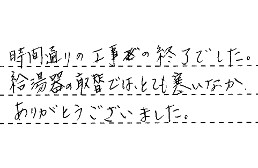 時間通りの工事の終了でした。
給湯器の取替では、とても寒いなか
ありがとうございました。